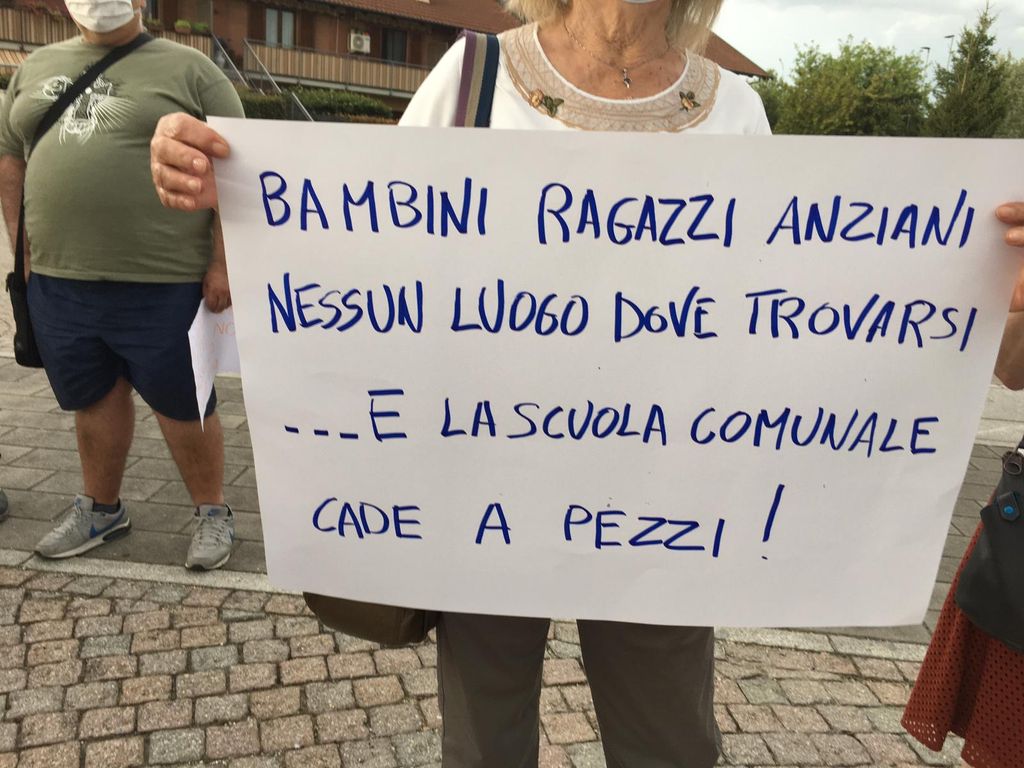 BAMBINI RAGAZZI ANZIANI
NESSUN LUOGO DOVE TROVARSI
---E LA SCUOLA COMUNALE
CADE A PEZZI!